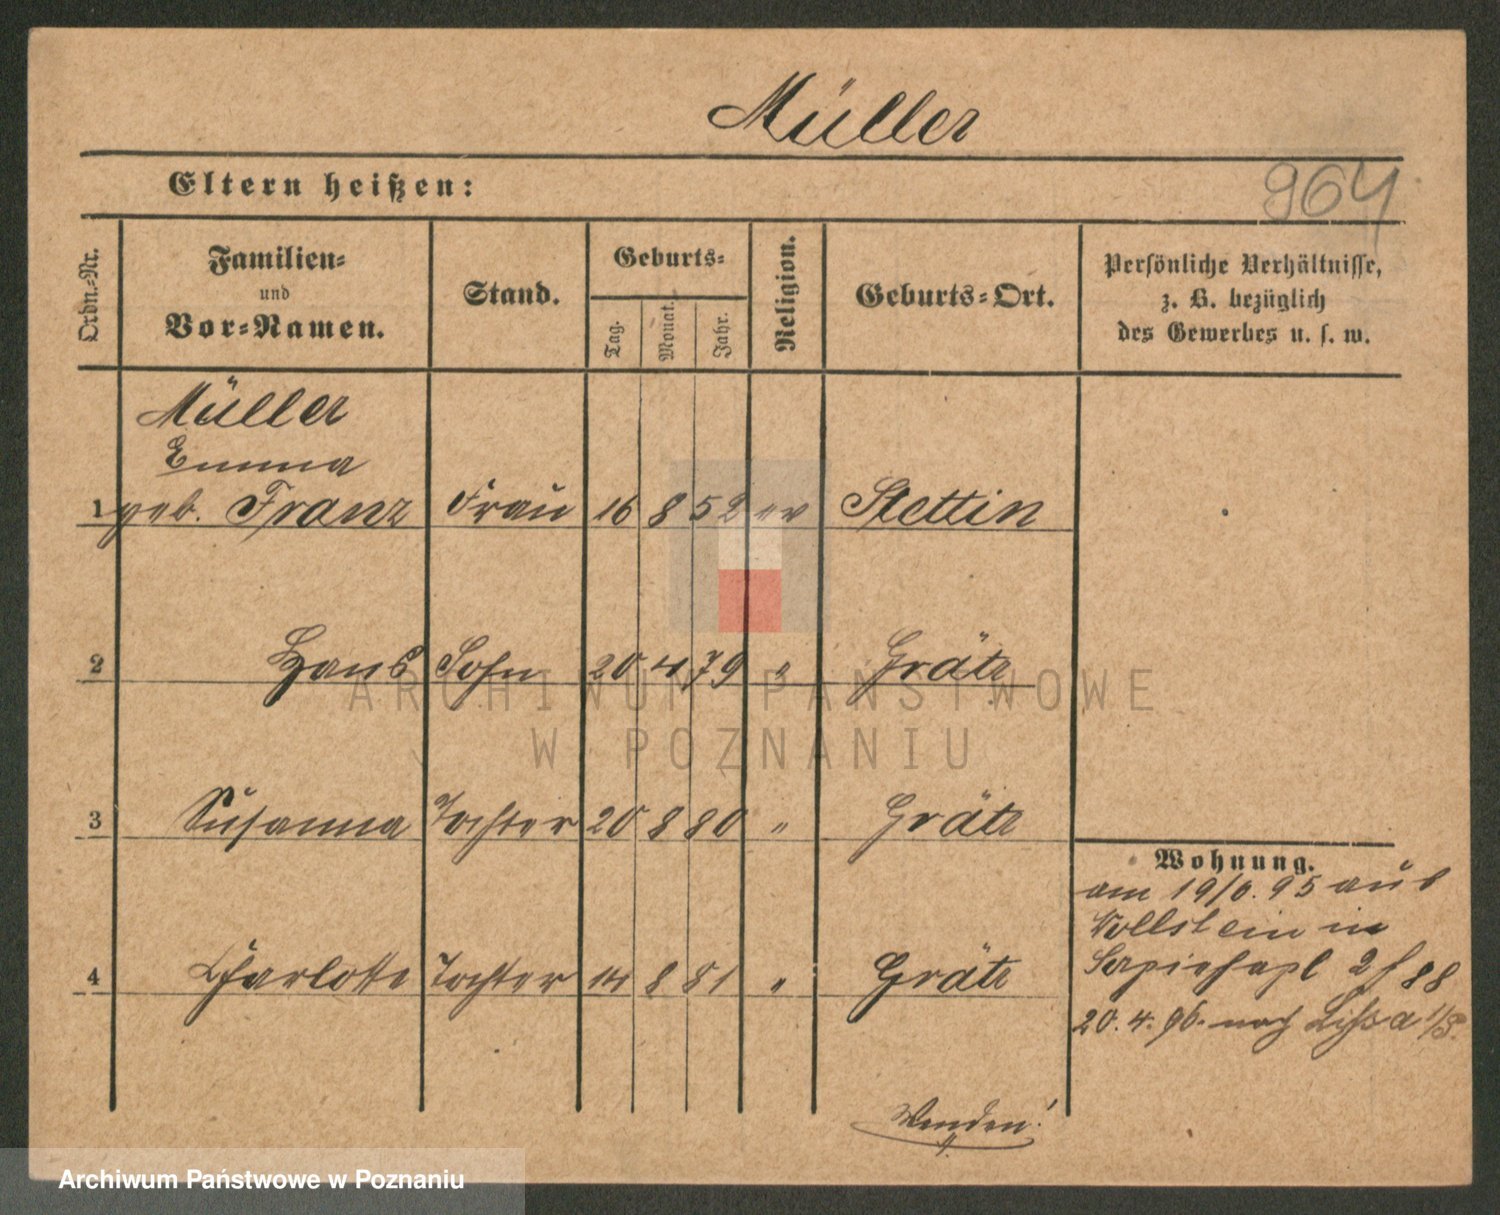 Müller
Eltern heißen:
964
Ordn.-Nr.
Familien-
und
Vor-Namen.
Stand.
Geburts-
Tag.
Monat.
Jahr.
Religion.
Geburts-Ort.
Persönliche Verhältnisse,
z. B. bezüglich
des Gewerbes u. s. w.
Müller
Emma
1 geb. Franz Frau 16 8 52 ev Stettin
2 Hans Sohn 20 4 79 " Grätz
3 Susanna Tochter 20 8 80 " Grätz
Wohnung.
am 95 aus
Wollstein in
4 Charlotte Tochter 14 8 81 " Grätz
Sapiehapl 2
20. 4. 96. nach Lissa
Wenden!
ARCHIWUM PAŃSTWOWE
W POZNANIU
Archiwum Państwowe w Poznaniu